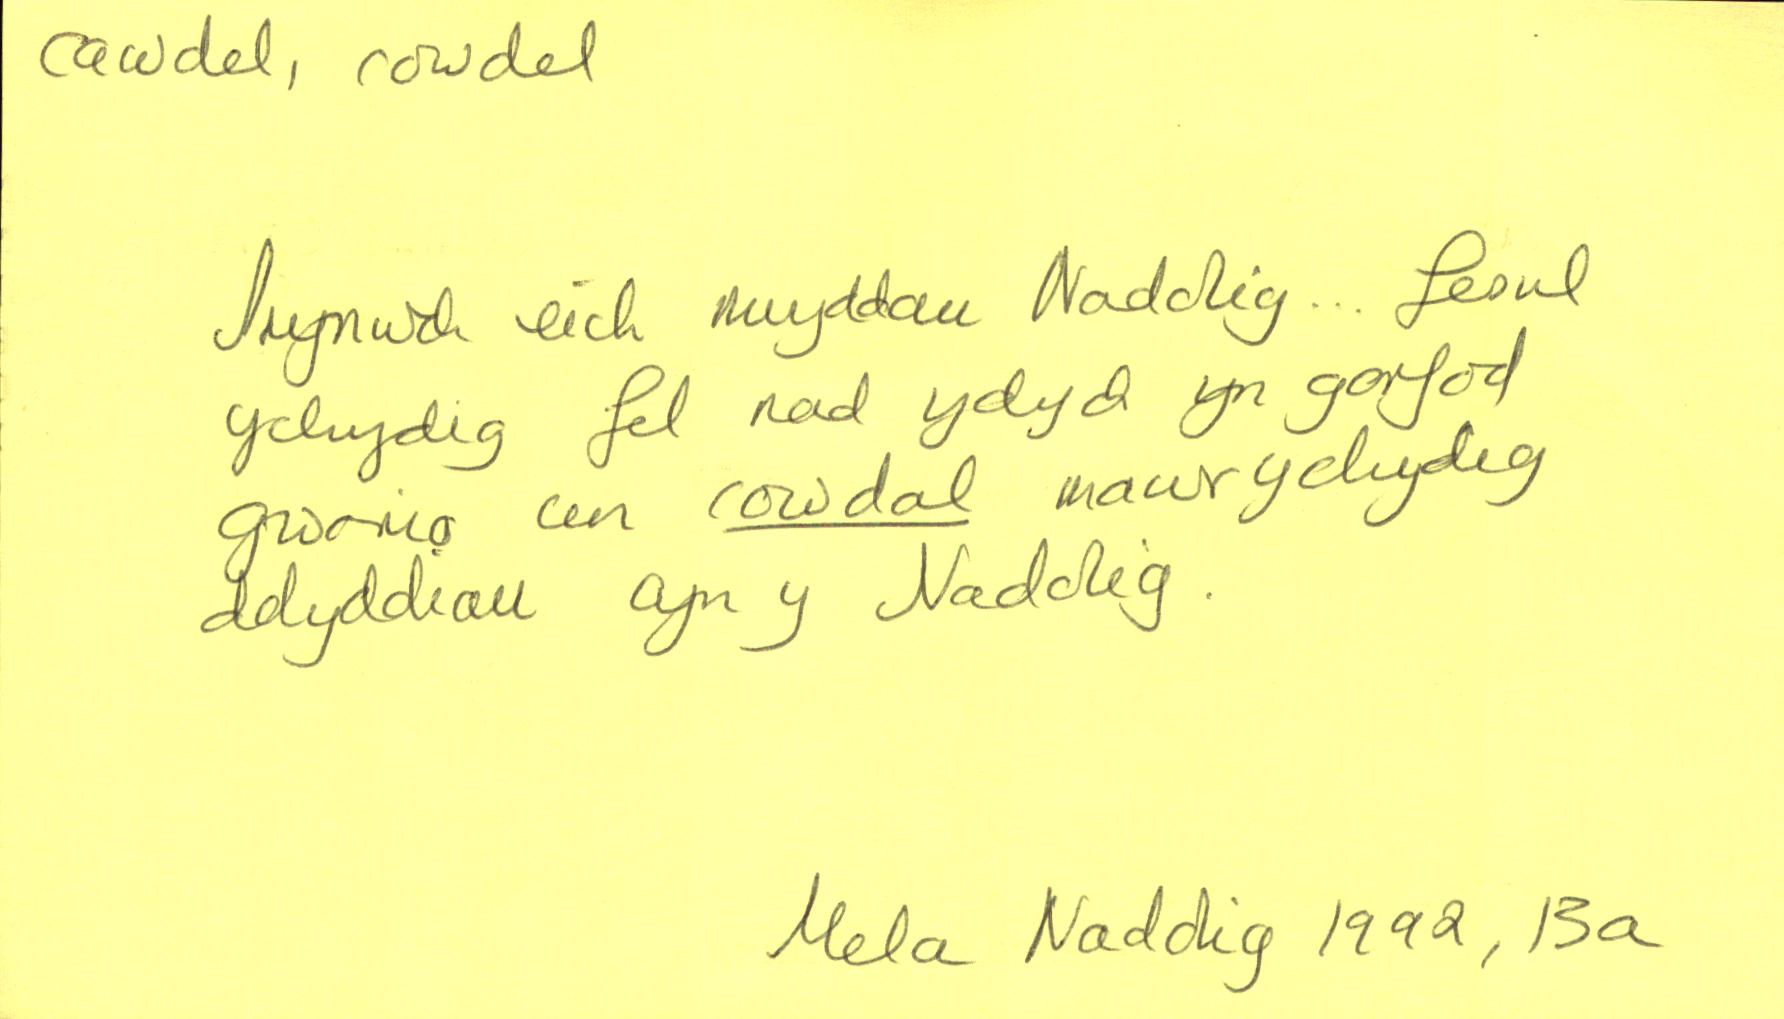 cawdel, cowdel
Prynwch eich nwyddau Nadolig... fesul
ychydig fel nad ydych yn gorfod
gwario un cowdal mawr ychydig
ddyddiau cyn y Nadolig.
Mela Nadolig 1992, 13a